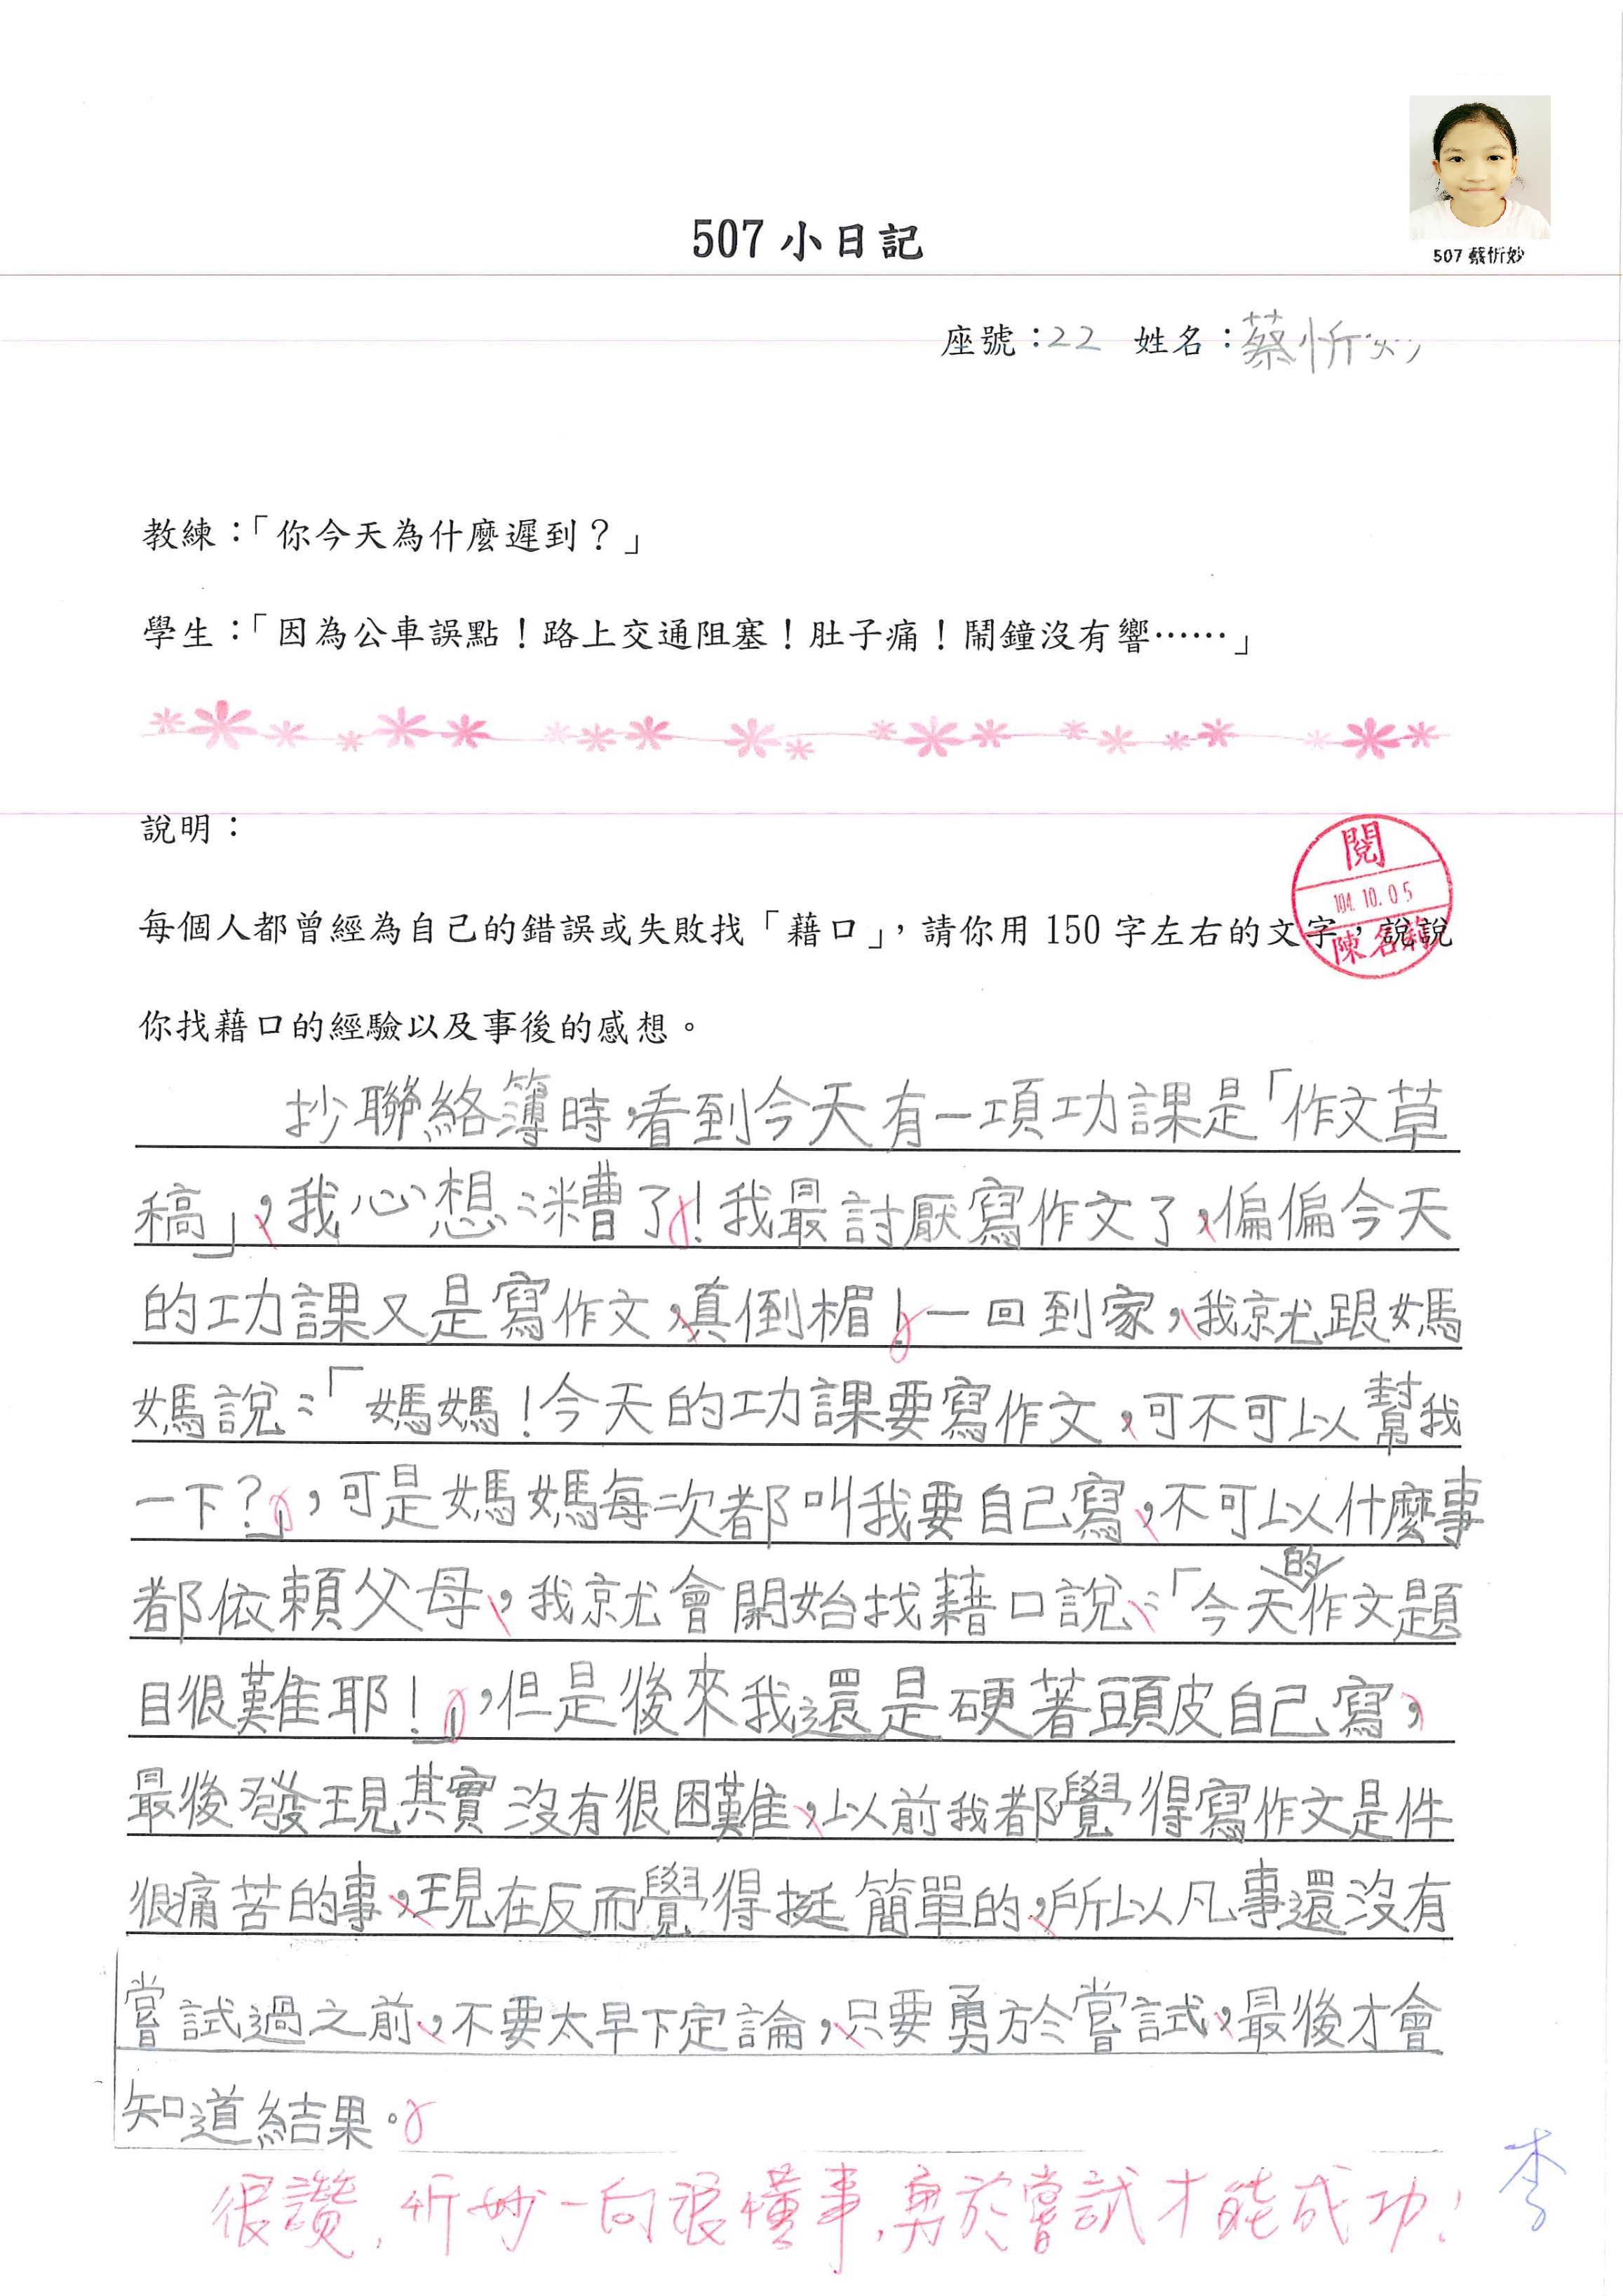 507 蔡忻妙
507 小日記
座號：22 姓名：蔡忻妙
教練：「你今天為什麼遲到？」
學生：「因為公車誤點！路上交通阻塞！肚子痛！鬧鐘沒有響……」
說明：
閱
104.10.05
陳名莉
每個人都曾經為自己的錯誤或失敗找「藉口」，請你用 150 字左右的文字，說說
你找藉口的經驗以及事後的感想。
抄聯絡簿時，看到今天有一項功課是「作文草
稿」，我心想：糟了！我最討厭寫作文了，偏偏今天
的功課又是寫作文，真倒楣！一回到家，我就跟媽
媽說：「媽媽！今天的功課要寫作文，可不可以幫我
一下？」，可是媽媽每次都叫我要自己寫，不可以什麼事
都依賴父母，我就會開始找藉口說：「今天的作文題
目很難耶！」，但是後來我還是硬著頭皮自己寫，
最後發現其實沒有很困難，以前我都覺得寫作文是件
很痛苦的事，現在反而覺得挺簡單的，所以凡事還沒有
嘗試過之前，不要太早下定論，只要勇於嘗試，最後才會
知道結果。
很讚，忻妙一向很懂事，勇於嘗試才能成功！
李